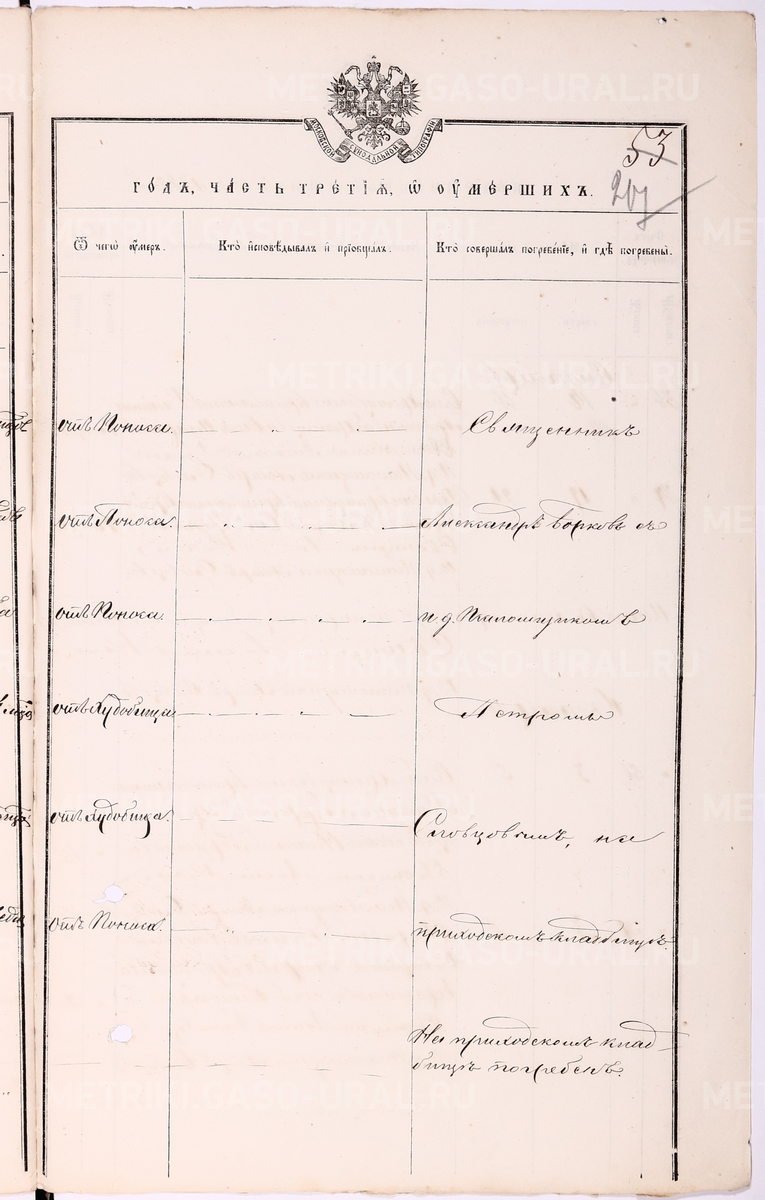 МОСКОВСКОЙ СѴНОДАЛЬНОЙ ТИПОГРАФІИ
53
207
ГО́ДЪ, ЧА́СТЬ ТРЕ́ТІѦ, Ѡ ОУМЕ́РШИХЪ.
Ѿ чегѡ̀ оу́меръ.
Кто̀ и҆сповѣ́дывалъ и҆ прїобща́лъ.
Кто̀ соверша́лъ погребе́нїе, и҆ гдѣ̀ погребены̀.
отъ Поноса. Священникъ
отъ Поноса. Александръ Борковъ съ
отъ Поноса. и. д. Псаломщикомъ
отъ Худобища Петромъ
отъ Худобища. Словцовымъ, на
отъ Поноса. приходскомъ кладбищѣ.
На приходскомъ клад-
бищѣ погребенъ.
METRIKI.GASO-URAL.RU